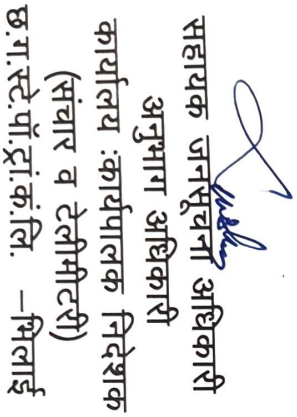 सहायक जनसूचना अधिकारी
अनुभाग अधिकारी
कार्यालय :कार्यपालक निदेशक
(संचार व टेलीमीटरी)
छ.ग.स्टे.पॉ.ट्रां.कं.लि. –भिलाई